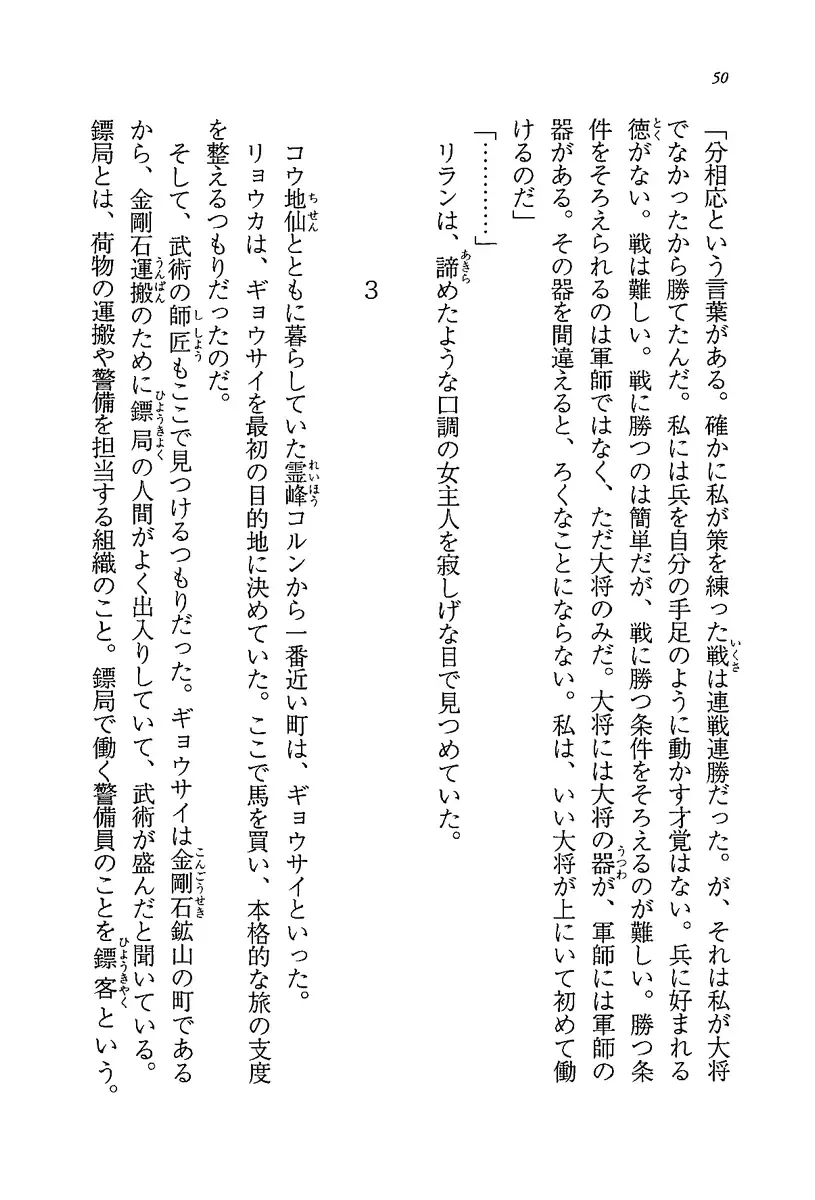 50
「分相応という言葉がある。確かに私が策を練った戦は連戦連勝だった。が、それは私が大将
でなかったから勝てたんだ。私には兵を自分の手足のように動かす才覚はない。兵に好まれる
徳がない。戦は難しい。戦に勝つのは簡単だが、戦に勝つ条件をそろえるのが難しい。勝つ条
件をそろえられるのは軍師ではなく、ただ大将のみだ。大将には大将の器が、軍師には軍師の
器がある。その器を間違えると、ろくなことにならない。私は、いい大将が上にいて初めて働
けるのだ」
「…………」
リランは、諦めたような口調の女主人を寂しげな目で見つめていた。
3
コウ地仙とともに暮らしていた霊峰コルンから一番近い町は、ギョウサイといった。
リョウカは、ギョウサイを最初の目的地に決めていた。ここで馬を買い、本格的な旅の支度
を整えるつもりだったのだ。
そして、武術の師匠もここで見つけるつもりだった。ギョウサイは金剛石鉱山の町である
から、金剛石運搬のために鏢局の人間がよく出入りしていて、武術が盛んだと聞いている。
鏢局とは、荷物の運搬や警備を担当する組織のこと。鏢局で働く警備員のことを鏢客という。